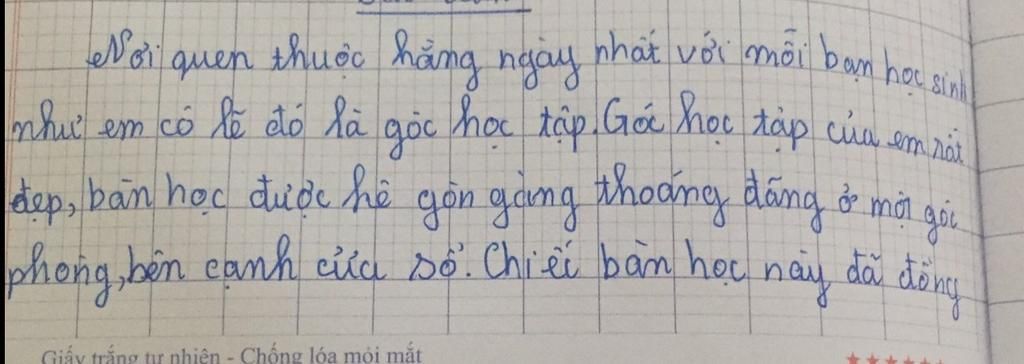 Nơi quen thuộc hằng ngày nhất với mỗi bạn học sinh
như em có lẽ đó là góc học tập. Góc học tập của em rất
đẹp, bàn học được kê gọn gàng thoáng đãng ở một góc
phòng, bên cạnh cửa sổ. Chiếc bàn học này đã đồng
Giấy trắng tự nhiên - Chống lóa mỏi mắt